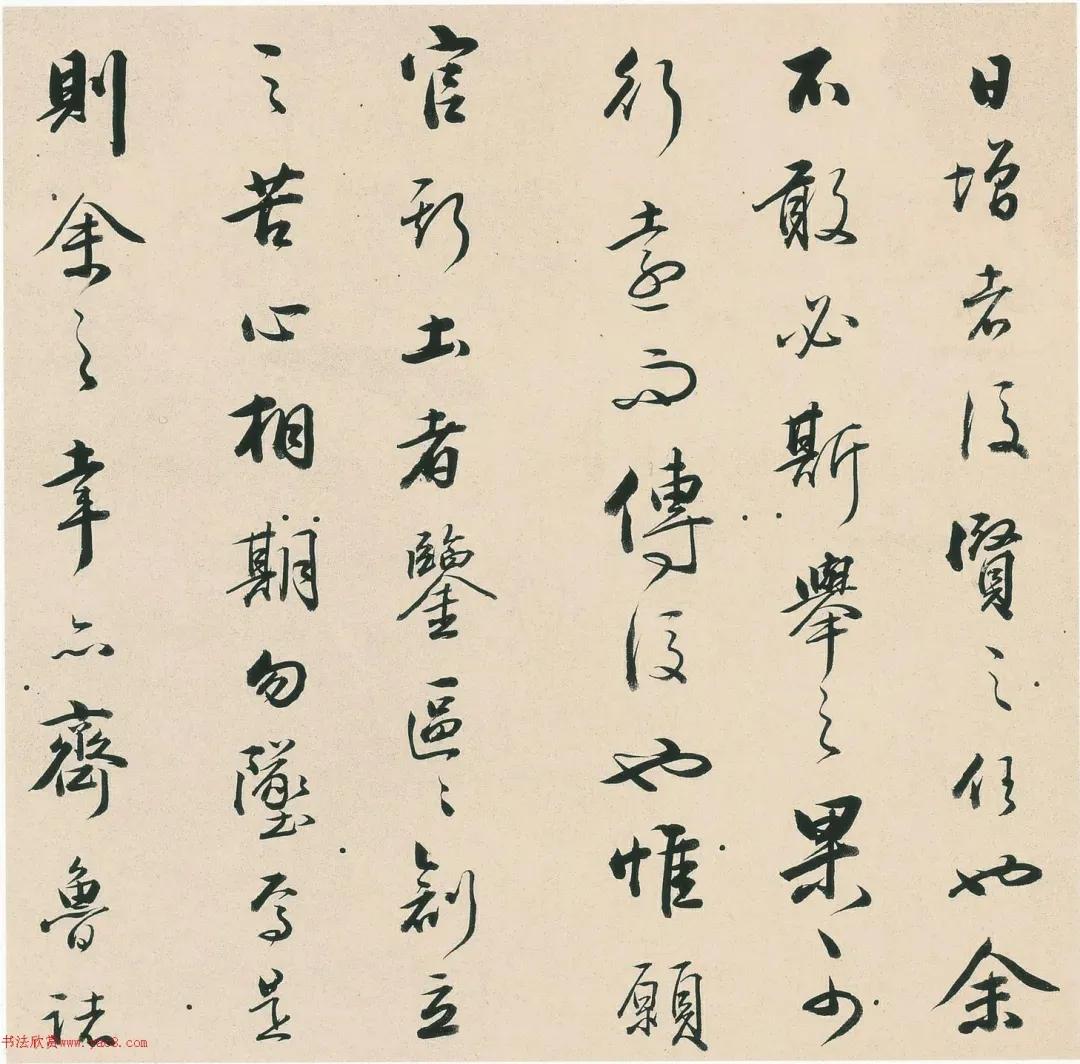 日增者後賢之任也余
不敢必斯舉之果可
行遠而傳後也惟願
官斯土者鑒區〻創立
之苦心相期勿墜焉是
則余之幸亦齊魯諸
书法欣赏www.yac8.com